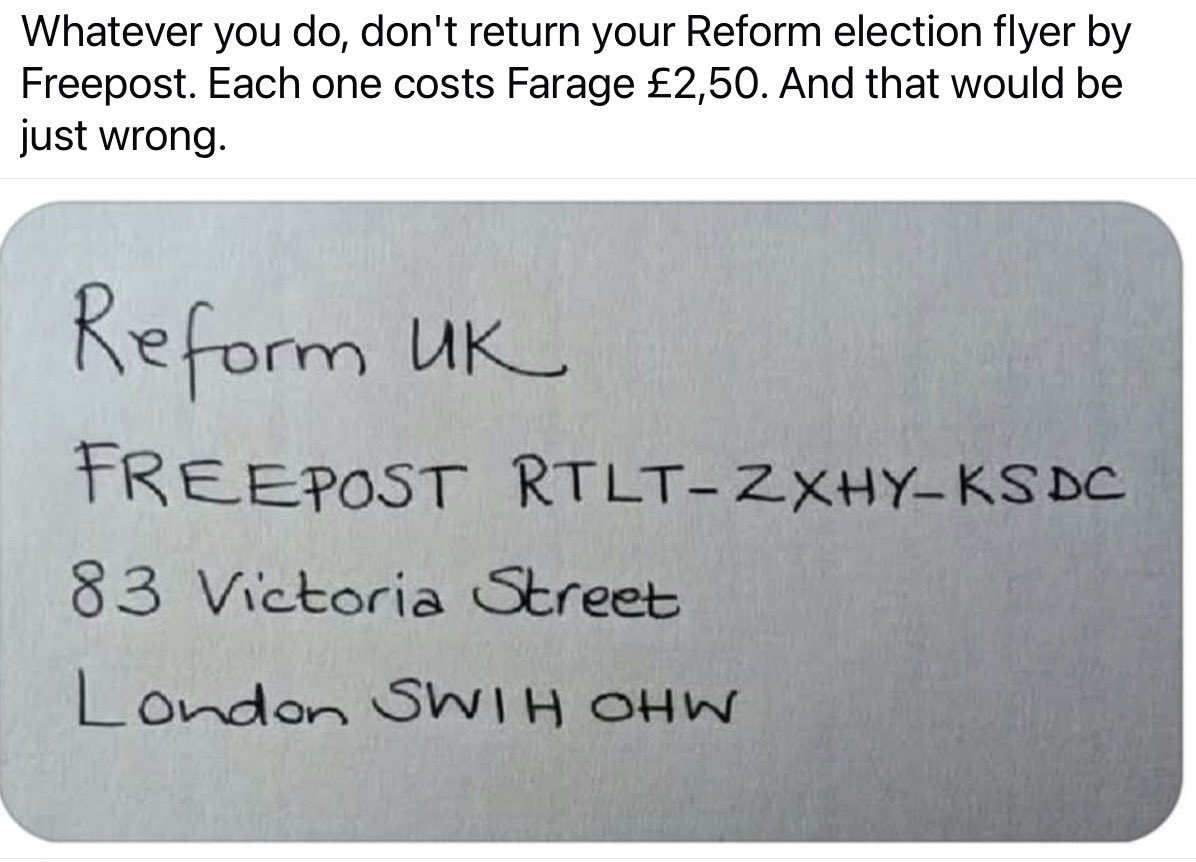 Whatever you do, don't return your Reform election flyer by
Freepost. Each one costs Farage £2,50. And that would be
just wrong.
Reform UK
FREEPOST RTLT-ZXHY-KSDC
83 Victoria Street
London SW1H OHW